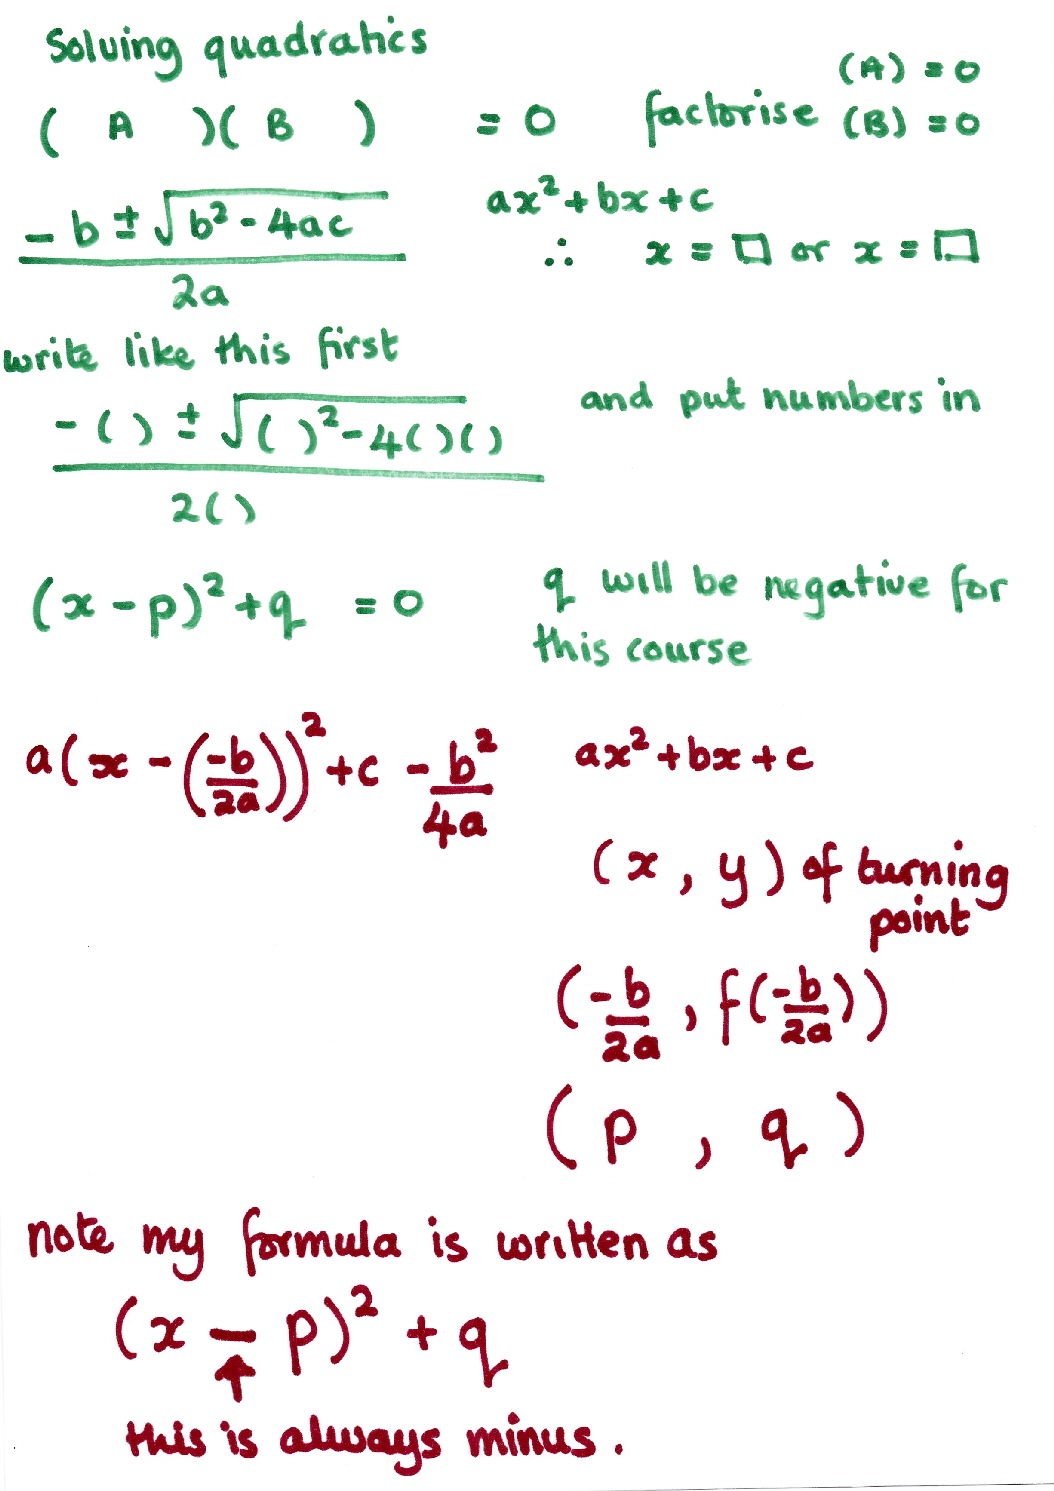 Solving quadratics
(A) = 0
( A )( B ) = 0 factorise (B) = 0
-b ± √b² - 4ac ax² + bx + c
2a ∴ x = □ or x = □
write like this first
and put numbers in
-( ) ± √( )² - 4( )( )
2( )
(x - p)² + q = 0 q will be negative for
this course
a(x - (-b/2a))² + c - b²/4a ax² + bx + c
(x, y) of turning
point
(-b/2a, f(-b/2a))
(p, q)
note my formula is written as
(x - p)² + q
↑
this is always minus.